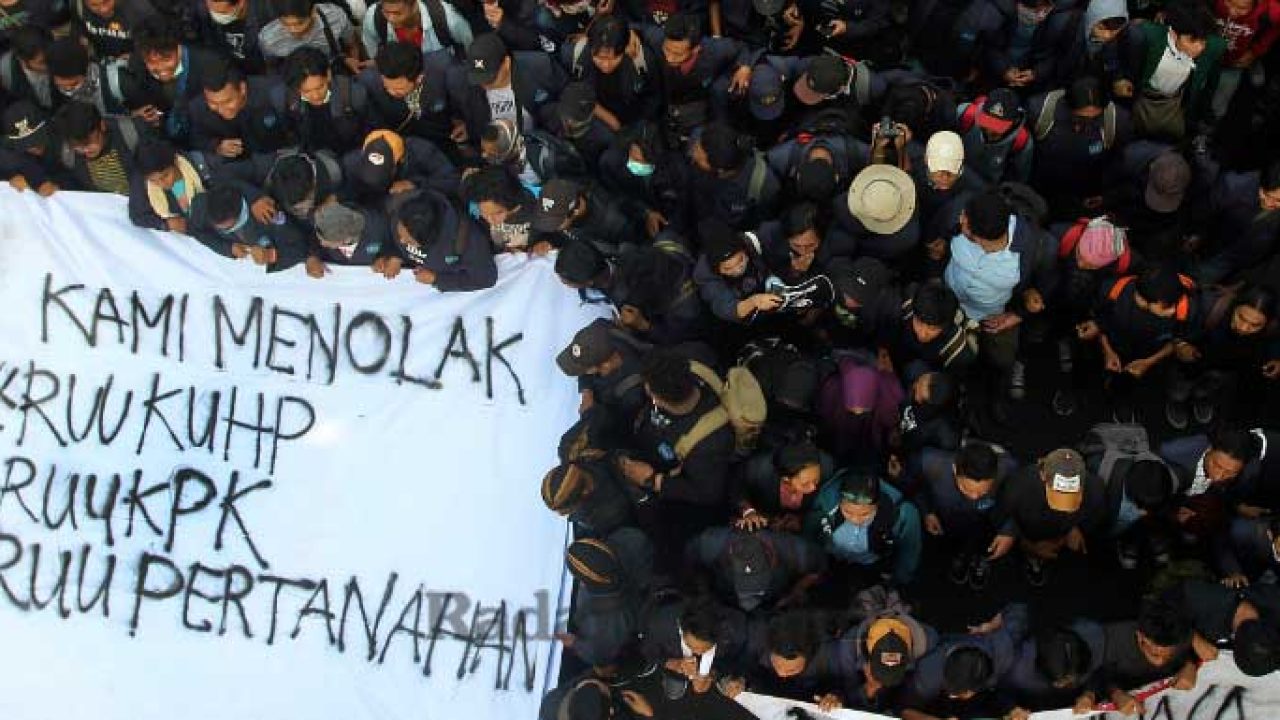 KAMI MENOLAK
RUU KUHP
RUU KPK
RUU PERTANAHAN